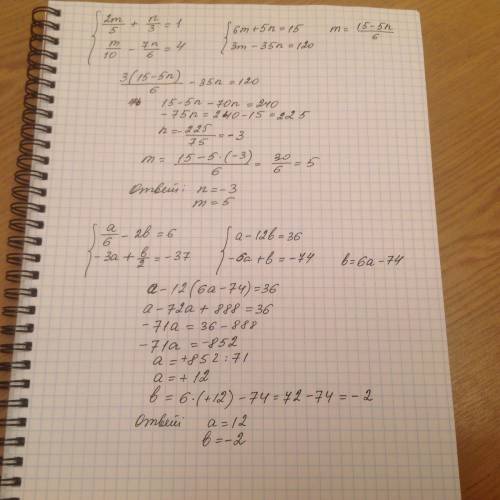 { 2m/5 + n/3 = 1 { 6m + 5n = 15 m = (15-5n)/6
{ m/10 - 7n/6 = 4 { 3m - 35n = 120
3(15-5n)/6 - 35n = 120
15 - 5n - 70n = 240
-75n = 240 - 15 = 225
n = -225/75 = -3
m = (15 - 5·(-3))/6 = 30/6 = 5
Ответ: n = -3
m = 5
{ a/6 - 2b = 6 { a - 12b = 36
{ -3a + b/2 = -37 { -6a + b = -74 b = 6a - 74
a - 12(6a - 74) = 36
a - 72a + 888 = 36
-71a = 36 - 888
-71a = -852
a = +852 : 71
a = + 12
b = 6·(+12) - 74 = 72 - 74 = -2
Ответ: a = 12
b = -2